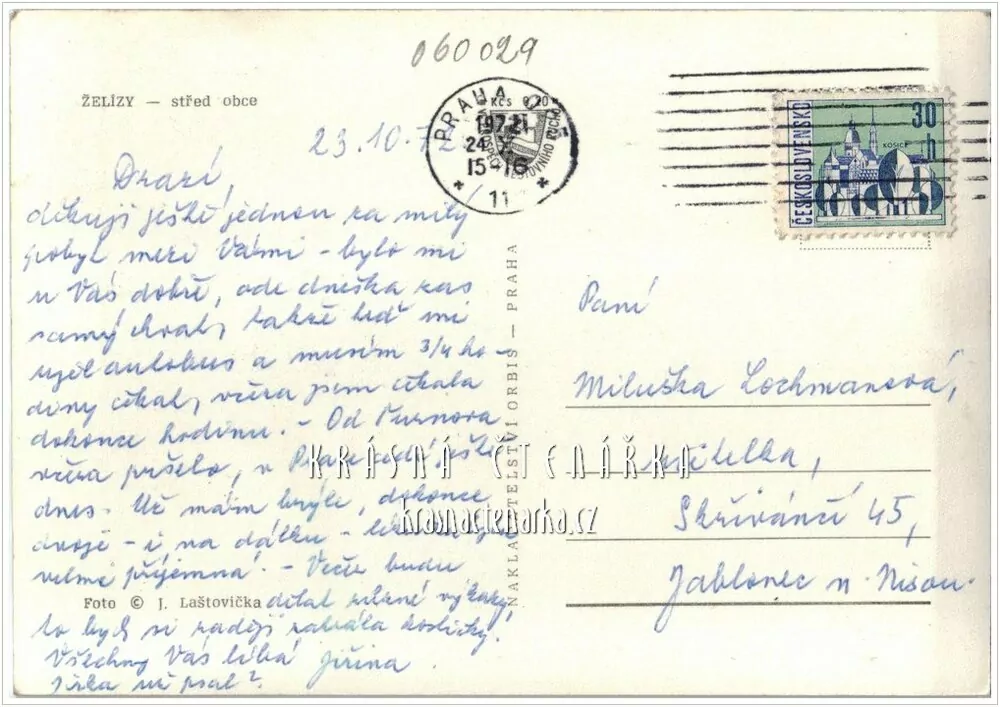 060029
ŽELÍZY — střed obce
PRAHA
Kčs 0,20
1972
24
15-16
11
ČESKOSLOVENSKO
30 h
KOŠICE
23.10.72
Drazí,
děkuji ještě jednou za milý
pobyt mezi Vámi - bylo mi
u Vás dobře, ode dneška zas
samý chvat, takže teď mi
ujel autobus a musím 3/4 ho-
diny čekat, včera jsem čekala
dokonce hodinu. - Od Turnova
včera pršelo, v Praze ještě
dnes. Už mám brýle, dokonce
dvoje - i na dálku -
velmi příjemná. - Večer budu
Foto © J. Laštovička
dělat různé výkazy,
to bych si raději
Všechny Vás líbá Jiřina.
Jirka už psal?
NAKLADATELSTVÍ ORBIS — PRAHA
Paní
Miluška Lochmanová,
učitelka,
Skřivánčí 45,
Jablonec n. Nisou
KRÁSNÁ ČTENÁŘKA
krasnactenarka.cz